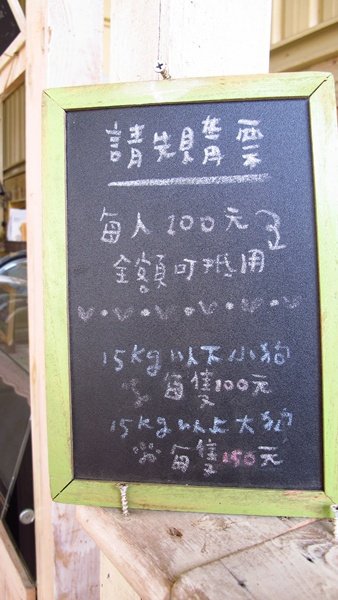 請先購票
每人100元
全額可抵用
15kg以下小狗
每隻100元
15kg以上大狗
每隻150元